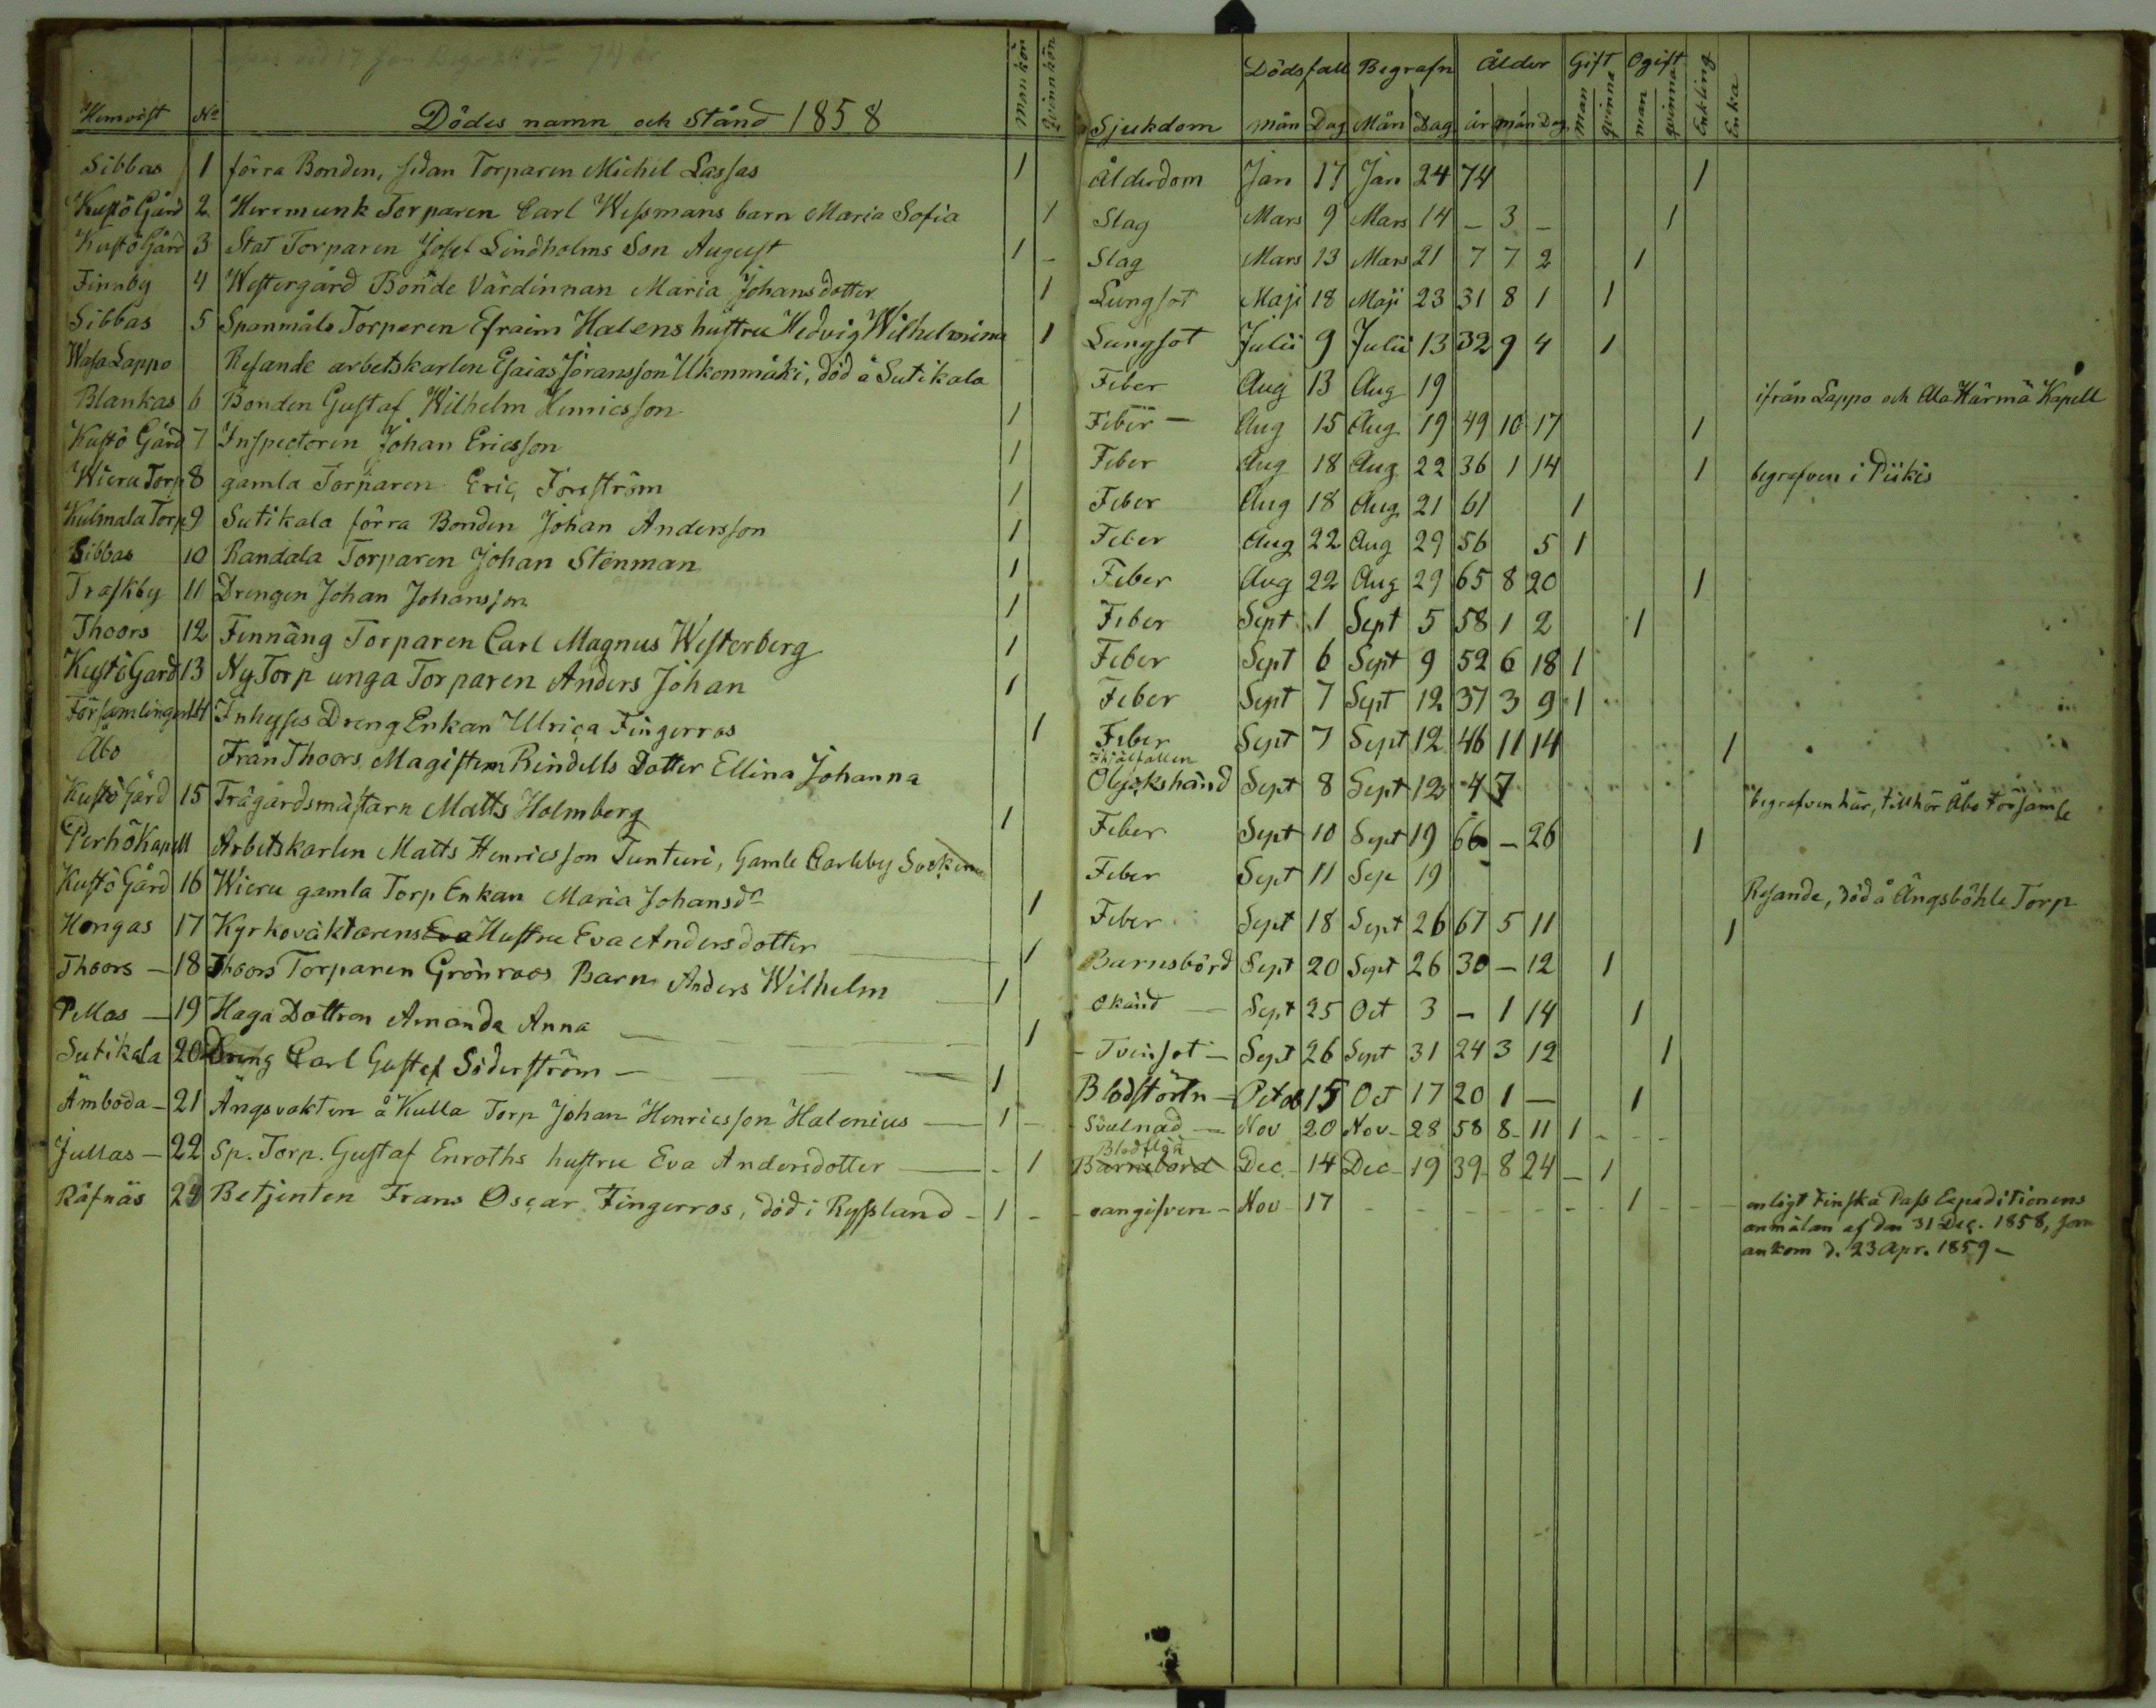 Hemvist No Dödes namn och Stånd 1858 Mankön Qvinnkön Sjukdom Dödsfall mån Dag Begrafn Mån Dag Ålder år mån Dag Gift man qvinna Ogift man qvinna Enkling Enka
Sibbas 1 förra Bonden, sedan Torparen Michel Lassas 1 Ålderdom Jan 17 Jan 24 74 1
Kustö Gård 2 Herrmunk Torparen Carl Wessmans barn Maria Sofia 1 Slag Mars 9 Mars 14 – 3 – 1
Kustö Gård 3 Stat Torparen Josef Lindholms Son August 1 – Slag Mars 13 Mars 21 7 7 2 1
Finnby 4 Westergård Bonde Värdinnan Maria Johansdotter 1 Lungsot Maji 18 Maji 23 31 8 1 1
Sibbas 5 Spanmåls Torparen Efraim Halens hustru Hedvig Wilhelmina 1 Lungsot Julii 9 Julii 13 32 9 4 1
Wasa Lappo Resande arbetskarlen Esaias Jöransson Ukonmäki, död å Sutikala Feber Aug 13 Aug 19 ifrån Lappo och Ala Härmä Kapell
Blankas 6 Bonden Gustaf Wilhelm Henricsson 1 Feber – Aug 15 Aug 19 49 10 17 1
Kustö Gård 7 Inspectoren Johan Ericsson 1 Feber Aug 18 Aug 22 36 1 14 1 begrafven i Piikis
Wieru Torp 8 gamla Torparen Eric Forsström 1 Feber Aug 18 Aug 21 61 1
Kulmala Torp 9 Sutikala förra Bonden Johan Andersson 1 Feber Aug 22 Aug 29 56 5 1
Sibbas 10 Randala Torparen Johan Stenman 1 Feber Aug 22 Aug 29 65 8 20 1
Traskby 11 Drengen Johan Johansson 1 Feber Sept 1 Sept 5 58 1 2 1
Thoors 12 Finnäng Torparen Carl Magnus Westerberg 1 Feber Sept 6 Sept 9 52 6 18 1
Kustö Gård 13 Ny Torp unga Torparen Anders Johan 1 Feber Sept 7 Sept 12 37 3 9 1
Församlingen 14 Inhyses Dreng Enkan Ulrica Fingerroos 1 Feber Sept 7 Sept 12 46 11 14 1
Åbo Från Thoors, Magistern Rindells Dotter Ellina Johanna Ihjälfallen Olyckshänd Sept 8 Sept 12 4 7 begrafven här, tillhör Åbo Församl
Kustö Gård 15 Trägårdsmästarn Matts Holmberg 1 Feber Sept 10 Sept 19 66 – 26 1
Perhö Kapell Arbetskarlen Matts Henricsson Tunturi, Gamle Carleby Socken Feber Sept 11 Sep 19 Resande, död å Ängsböhle Torp
Kustö Gård 16 Wieru gamla Torp Enkan Maria Johansdr 1 Feber Sept 18 Sept 26 67 5 11 1
Hongas 17 Kyrkoväktarens Eva Hustru Eva Andersdotter 1 Barnsbörd Sept 20 Sept 26 30 – 12 1
Thoors – 18 Thoors Torparen Grönroos Barn Anders Wilhelm 1 okänd – Sept 25 Oct 3 – 1 14 1
Pellas – 19 Haga Dottren Amanda Anna 1 – Tvinsot – Sept 26 Sept 31 24 3 12 1
Sutikala 20 Dreng Carl Gustaf Söderström – 1 Blodstörtn – Octob 15 Oct 17 20 1 – 1
Ämboda – 21 Ängsvakten å Kulla Torp Johan Henricsson Halenius – 1 – Svulnad – Nov 20 Nov – 28 58 8 – 11 1
Jullas – 22 Sp. Torp. Gustaf Enroths hustru Eva Andersdotter – 1 Blodflöd Barnsbörd Dec – 14 Dec – 19 39 – 8 24 – 1
Räfnäs 23 Betjenten Frans Oscar Fingerroos, död i Ryssland – 1 – oangifven – Nov – 17 1 enligt Finska Pass Expeditionens
anmälan af den 31 Dec. 1858, som
ankom d. 23 Apr. 1859 –